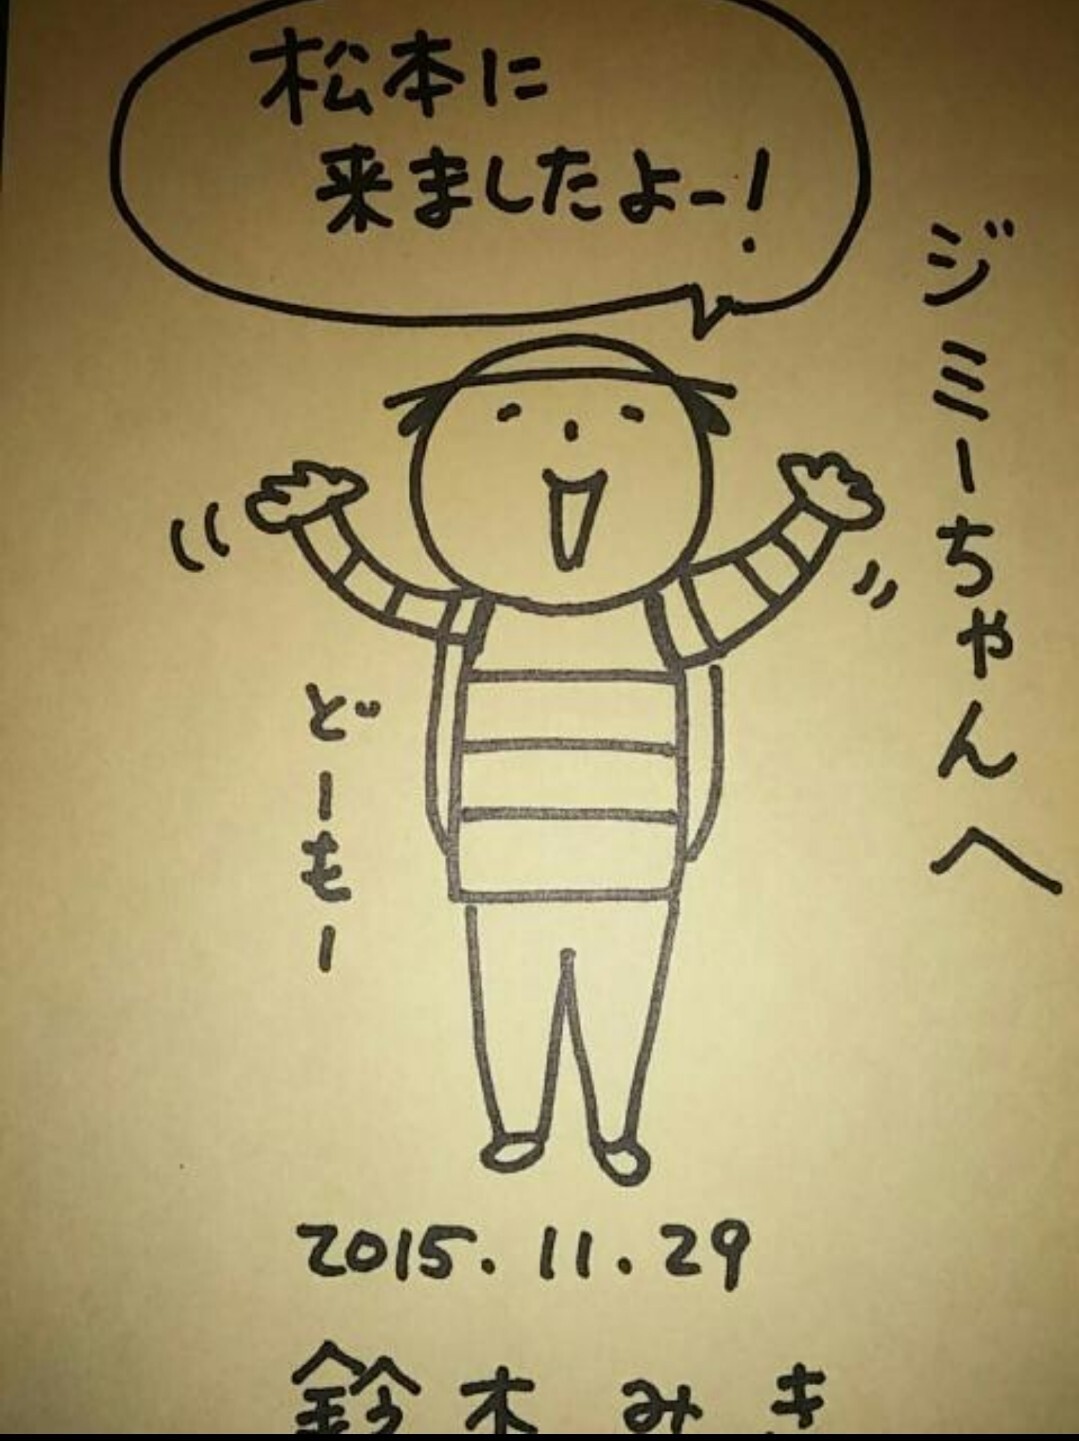 松本に
来ましたよー!
ジミーちゃんへ
どーもー
2015.11.29
鈴木みき